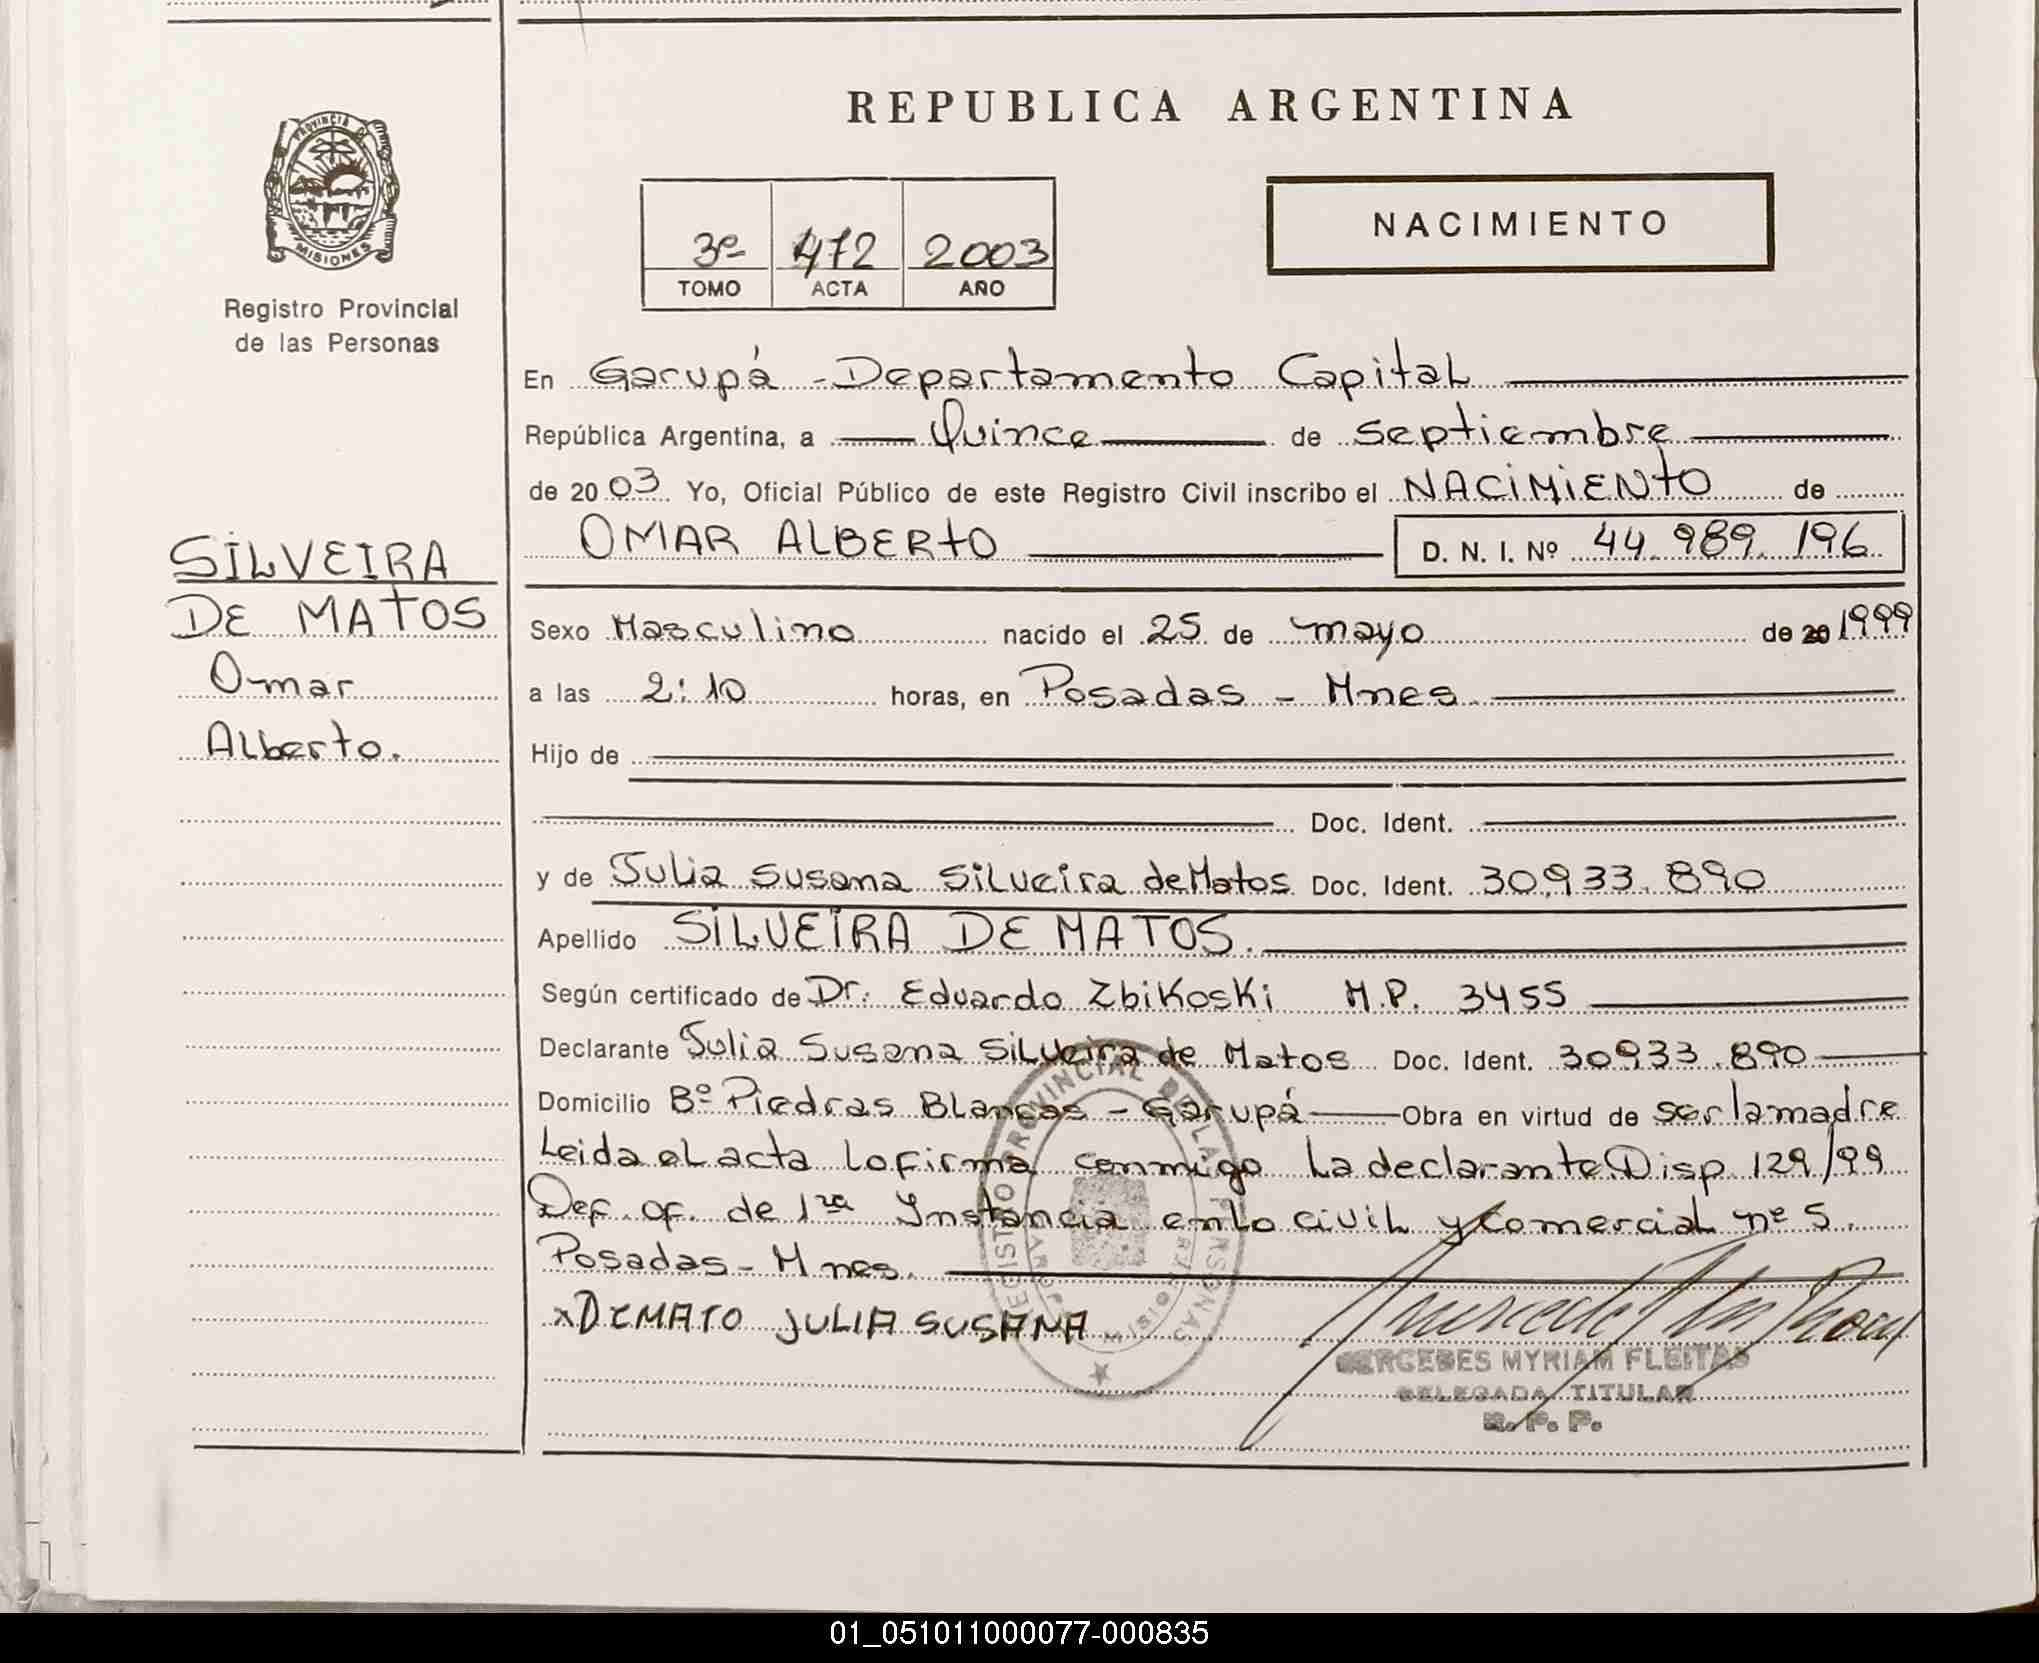 REPUBLICA ARGENTINA
PROVINCIA DE
MISIONES
Registro Provincial
de las Personas
3º 472 2003
TOMO ACTA AÑO
NACIMIENTO
En Garupá - Departamento Capital
República Argentina, a Quince de septiembre
de 2003 Yo, Oficial Público de este Registro Civil inscribo el NACIMIENTO de
OMAR ALBERTO D. N. I. Nº 44.989.196
SILVEIRA
DE MATOS
Omar
Alberto.
Sexo Masculino nacido el 25 de mayo de 20 1999
a las 2:10 horas, en Posadas - Mnes.
Hijo de
Doc. Ident.
y de Julia Susana Silveira de Matos Doc. Ident. 30.933.890
Apellido SILVEIRA DE MATOS.
Según certificado de Dr. Eduardo Zbikoski M.P. 3455
Declarante Julia Susana Silveira de Matos Doc. Ident. 30933.890
Domicilio Bº Piedras Blancas - Garupá Obra en virtud de ser la madre
Leida el acta lo firma conmigo la declarante. Disp. 129/99
Def. of. de 1ra Instancia en lo civil y comercial nº 5.
Posadas - Mnes.
x DEMATO JULIA SUSANA
REGISTRO PROVINCIAL DE LAS PERSONAS
MERCEDES MYRIAM FLEITAS
DELEGADA TITULAR
R. P. P.
01_051011000077-000835